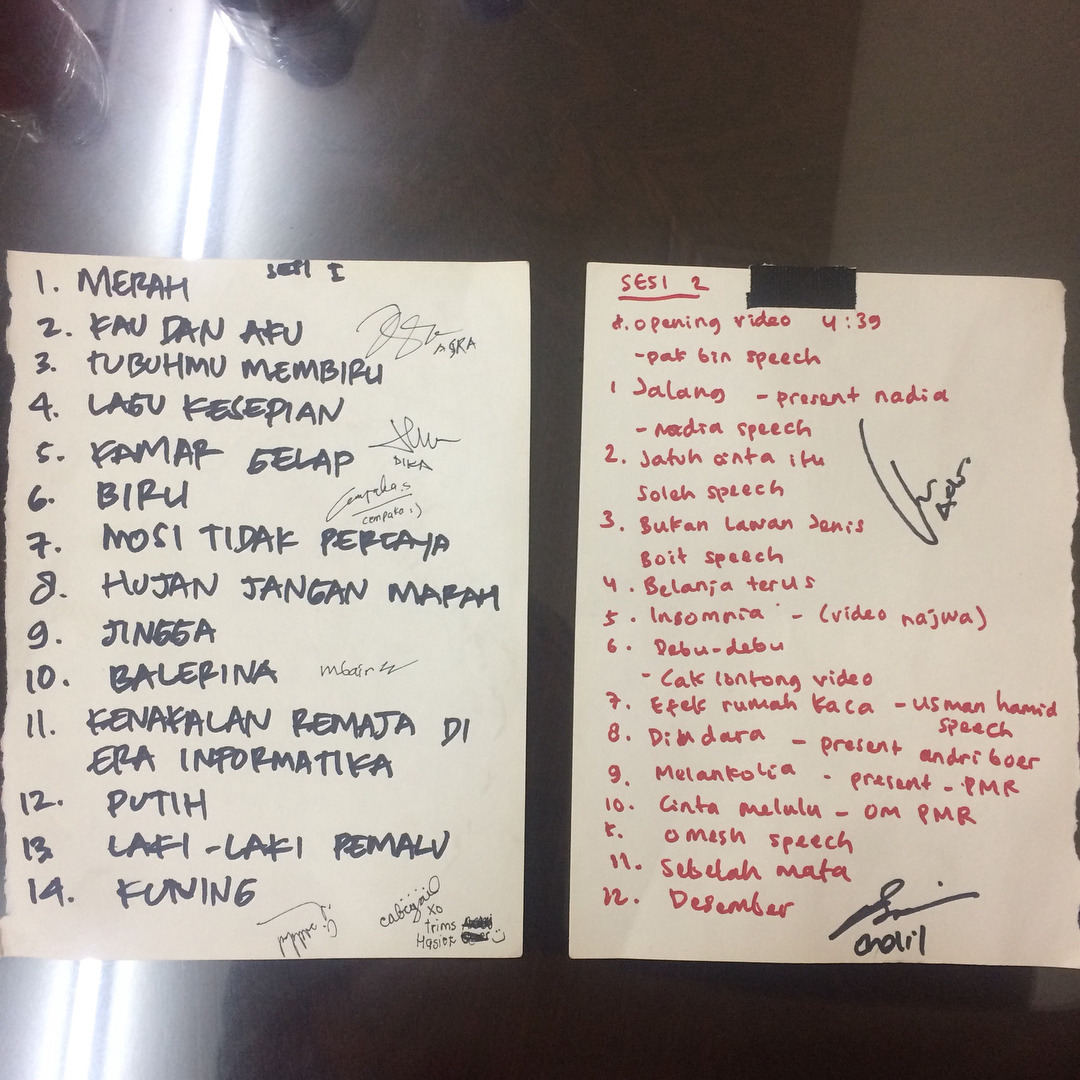 SESI I
1. MERAH
2. KAU DAN AKU
AGRA
3. TUBUHMU MEMBIRU
4. LAGU KESEPIAN
5. KAMAR GELAP
DIKA
6. BIRU
Cempakas
cempaka :)
7. MOSI TIDAK PERCAYA
8. HUJAN JANGAN MARAH
9. JINGGA
10. BALERINA
11. KENAKALAN REMAJA DI
ERA INFORMATIKA
12. PUTIH
13. LAKI-LAKI PEMALU
14. KUNING
xo
trims
SESI 2
opening video 4:39
-pak bin speech
1 Jalang - present nadia
- nadia speech
2. Jatuh cinta itu
Soleh speech
3. Bukan Lawan Jenis
Boit speech
4. Belanja terus
5. Insomnia - (video najwa)
6. Debu-debu
- Cak lontong video
7. Efek rumah kaca - usman hamid
speech
8. Dindara - present andri boer
9. Melankolia - present - PMR
10. Cinta melulu - OM PMR
omesh speech
11. Sebelah mata
12. Desember
cholil